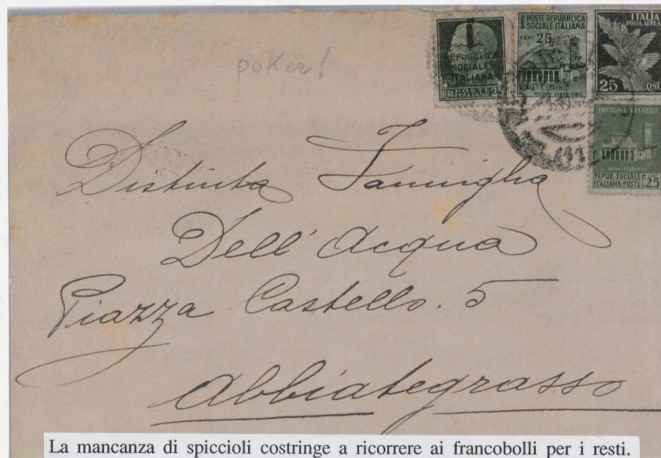 poker!
REPUBBLICA
SOCIALE
ITALIANA
25
POSTE REPUBBLICA
SOCIALE ITALIANA
CENT 25
ITALIA
POSTA AEREA
25
REPUB. SOCIALE
ITALIANA-POSTE 25
Distinta Famiglia
Dell' Acqua
Piazza Castello. 5
Abbiategrasso
La mancanza di spiccioli costringe a ricorrere ai francobolli per i resti.